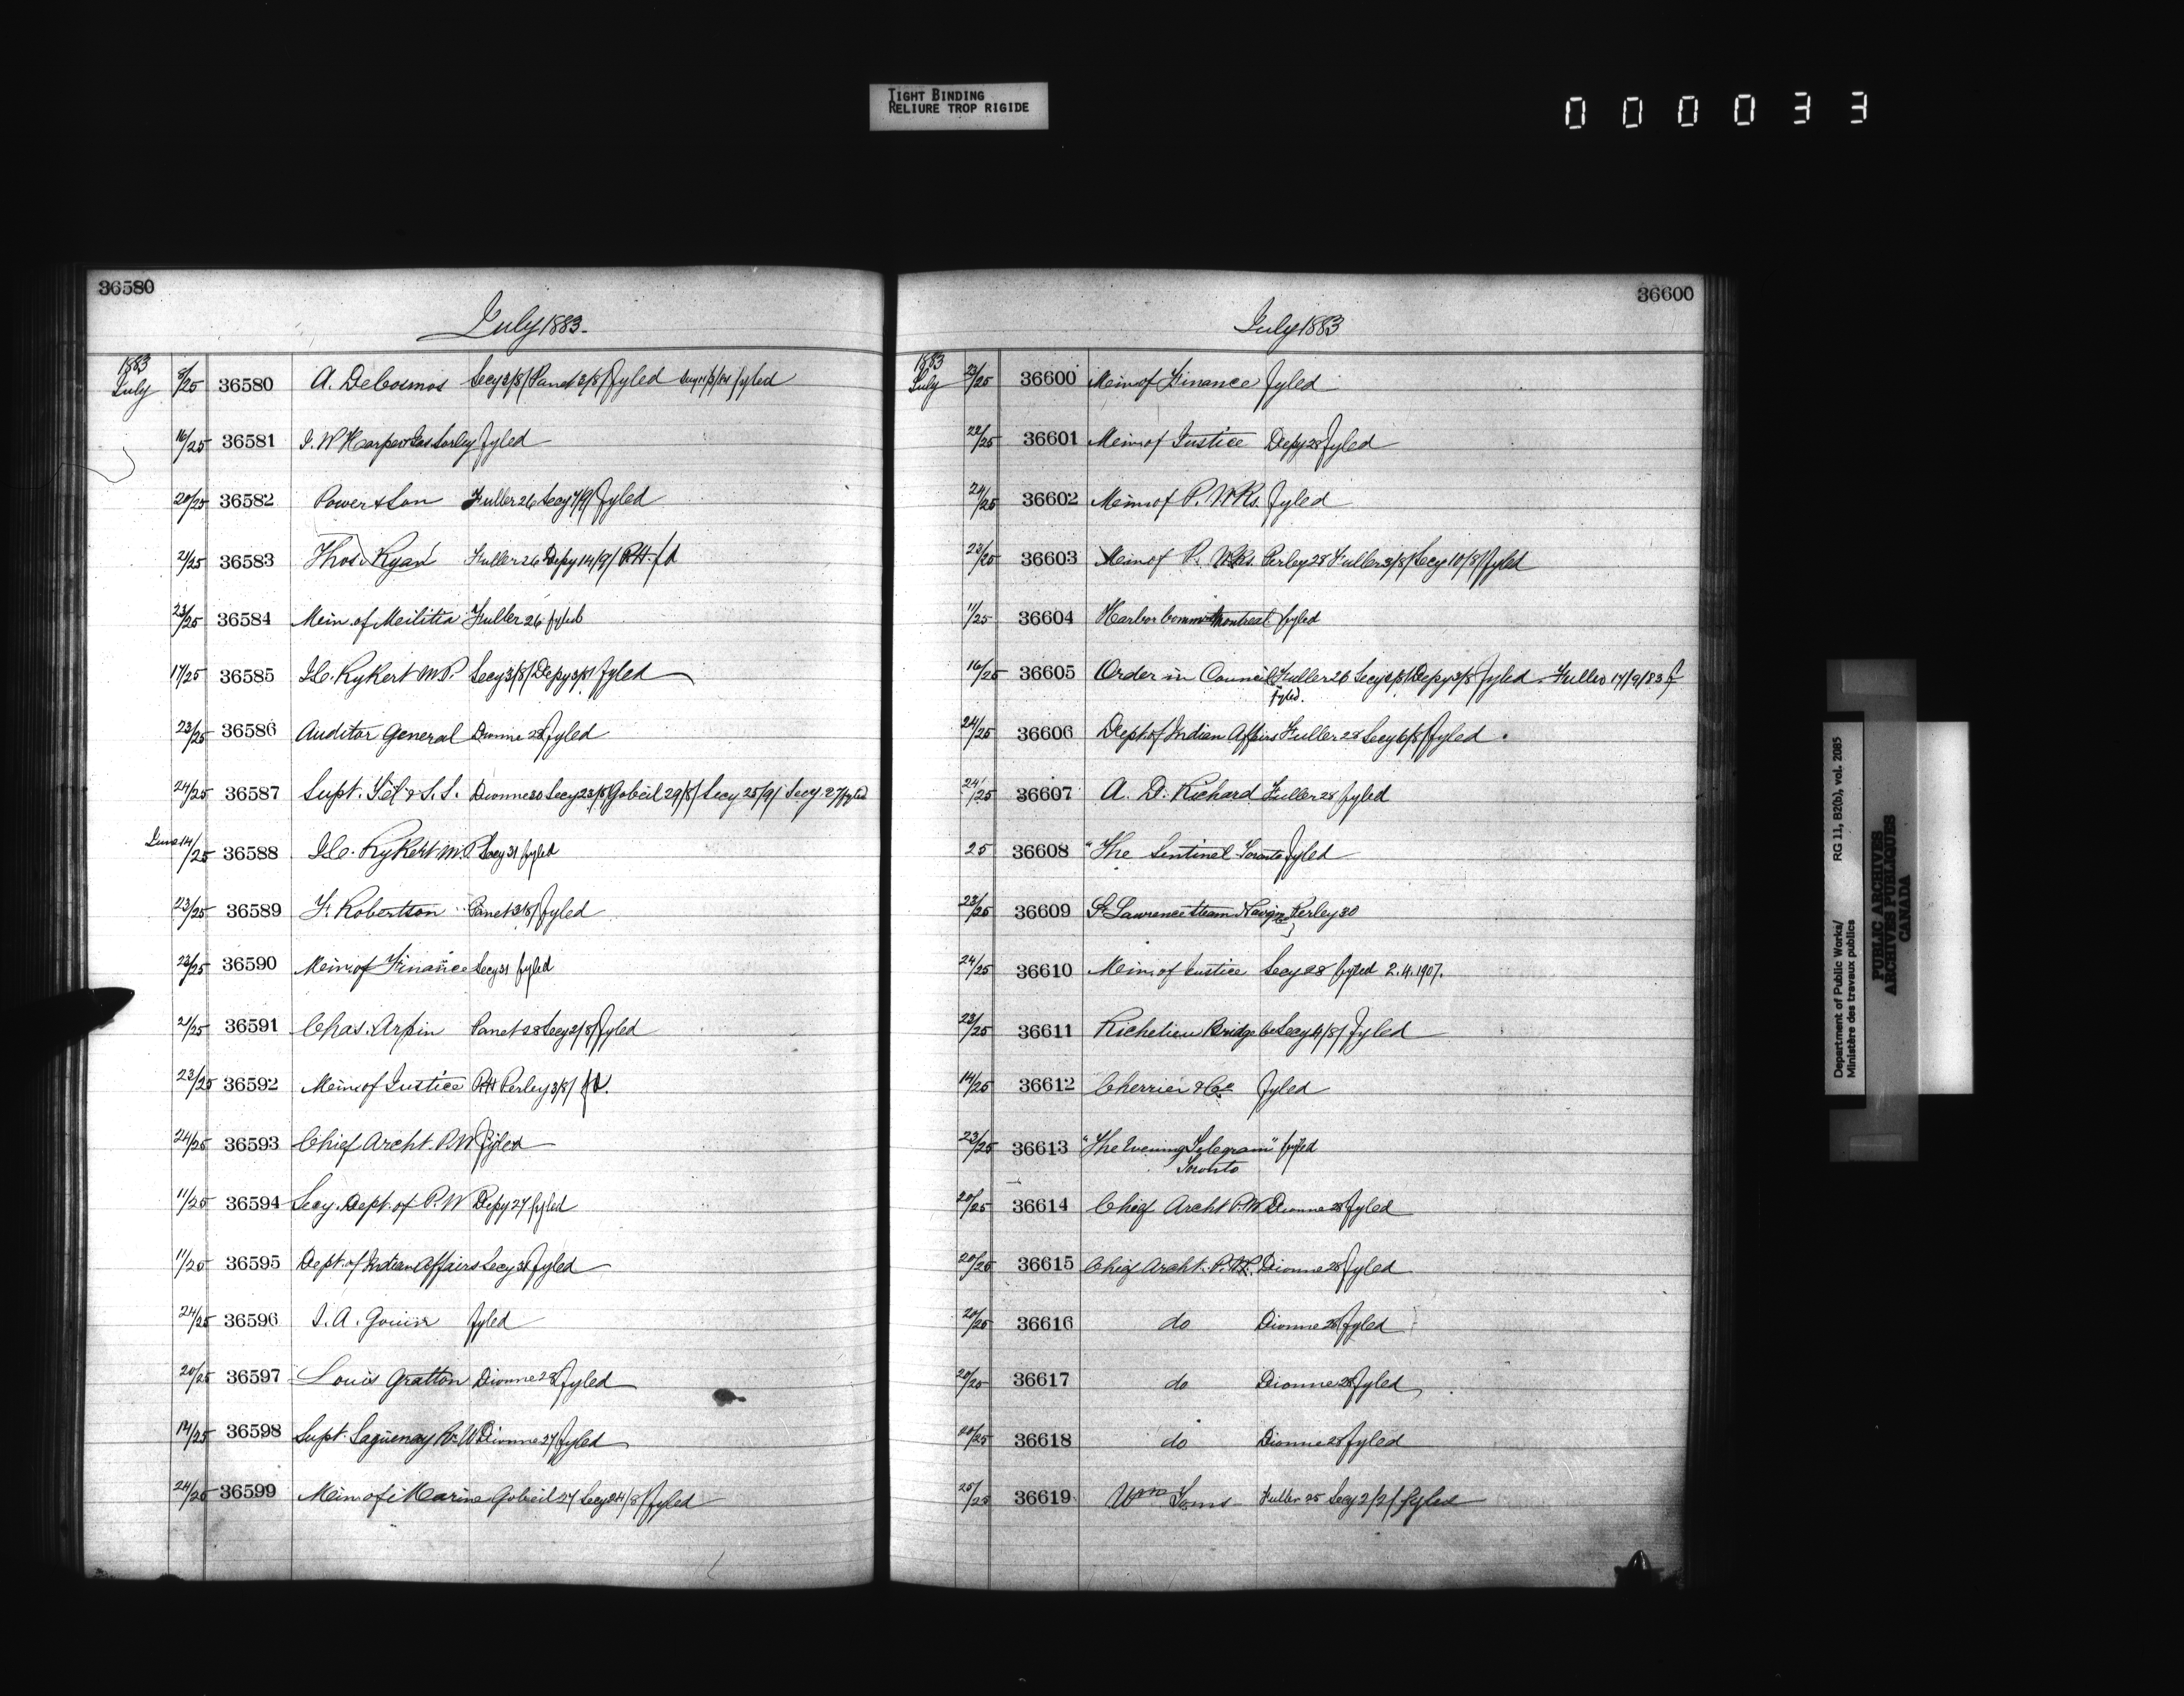 TIGHT BINDING
RELIURE TROP RIGIDE
000033
36580
July 1883
1883
July 8/25 36580 A. DeCosmos Secy 2/8/ Panet 3/8/ fyled Secy fyled
16/25 36581 J. W Harper & Jas. Sorley fyled
20/25 36582 Power & Son Fuller 26 Secy 7/9/ fyled
21/25 36583 Thos. Ryan Fuller 26 Depy 14/9/ RH fd
23/25 36584 Min. of Militia Fuller 26 fyled
17/25 36585 J.C. Rykert M.P. Secy 3/8/ Depy 3/8/ fyled
23/25 36586 Auditor General Dionne 28 fyled
24/25 36587 Supt. Tel & S.S. Dionne 30 Secy 23/8/ Gobeil 29/8/ Secy 25/9/ Secy 27 fyled
June 14/25 36588 J.C. Rykert M.P. Secy 31 fyled
23/25 36589 F. Robertson Panet 3/8/ fyled
23/25 36590 Min. of Finance Secy 31 fyled
21/25 36591 Chas. Arpin Panet 28 Secy 2/8/ fyled
23/25 36592 Min. of Justice RH Perley 3/8/ fd.
24/25 36593 Chief Archt. P.W fyled
11/25 36594 Secy. Dept. of P.W Depy 27 fyled
11/25 36595 Dept. of Indian Affairs Secy 31 fyled
24/25 36596 J. A. Gouin fyled
20/25 36597 Louis Gratton Dionne 28 fyled
14/25 36598 Supt. Saguenay Dionne 27 fyled
24/25 36599 Min. of Marine Gobeil 27 Secy 24/8/ fyled
36600
July 1883
1883
July 23/25 36600 Min of Finance fyled
22/25 36601 Min. of Justice Depy 28 fyled
24/25 36602 Min. of P. WKs. fyled
23/25 36603 Min of P. WKs. Perley 28 Fuller 3/8/ Secy 10/8/ fyled
11/25 36604 Harbor Comm. Montreal fyled
16/25 36605 Order in Council Fuller 26 Secy 2/8/ Depy 3/8 fyled. Fuller 17/9/83 f
fyled.
24/25 36606 Dept of Indian Affairs Fuller 28 Secy 6/8/ fyled
24/25 36607 A. D. Richard Fuller 28 fyled
25 36608 "The Sentinel Toronto fyled
23/25 36609 St. Lawrence Steam Navign Perley 30
24/25 36610 Min. of Justice Secy 28 fyled 2.4.1907.
23/25 36611 Richelieu Bridge Co Secy 4/8/ fyled
14/25 36612 Cherrier & Co fyled
23/25 36613 "The Evening Telegram" fyled
Toronto
20/25 36614 Chief Archt P.W Dionne 28 fyled
20/25 36615 Chief Archt. P.W. Dionne 28 fyled
20/25 36616 do Dionne 28 fyled
20/25 36617 do Dionne 28 fyled
20/25 36618 do Dionne 28 fyled
25/25 36619 Wm Toms Fuller 25 Secy 2/2/ fyled
Department of Public Works/
Ministère des travaux publics
RG 11, B2(b), vol. 2085
PUBLIC ARCHIVES
ARCHIVES PUBLIQUES
CANADA